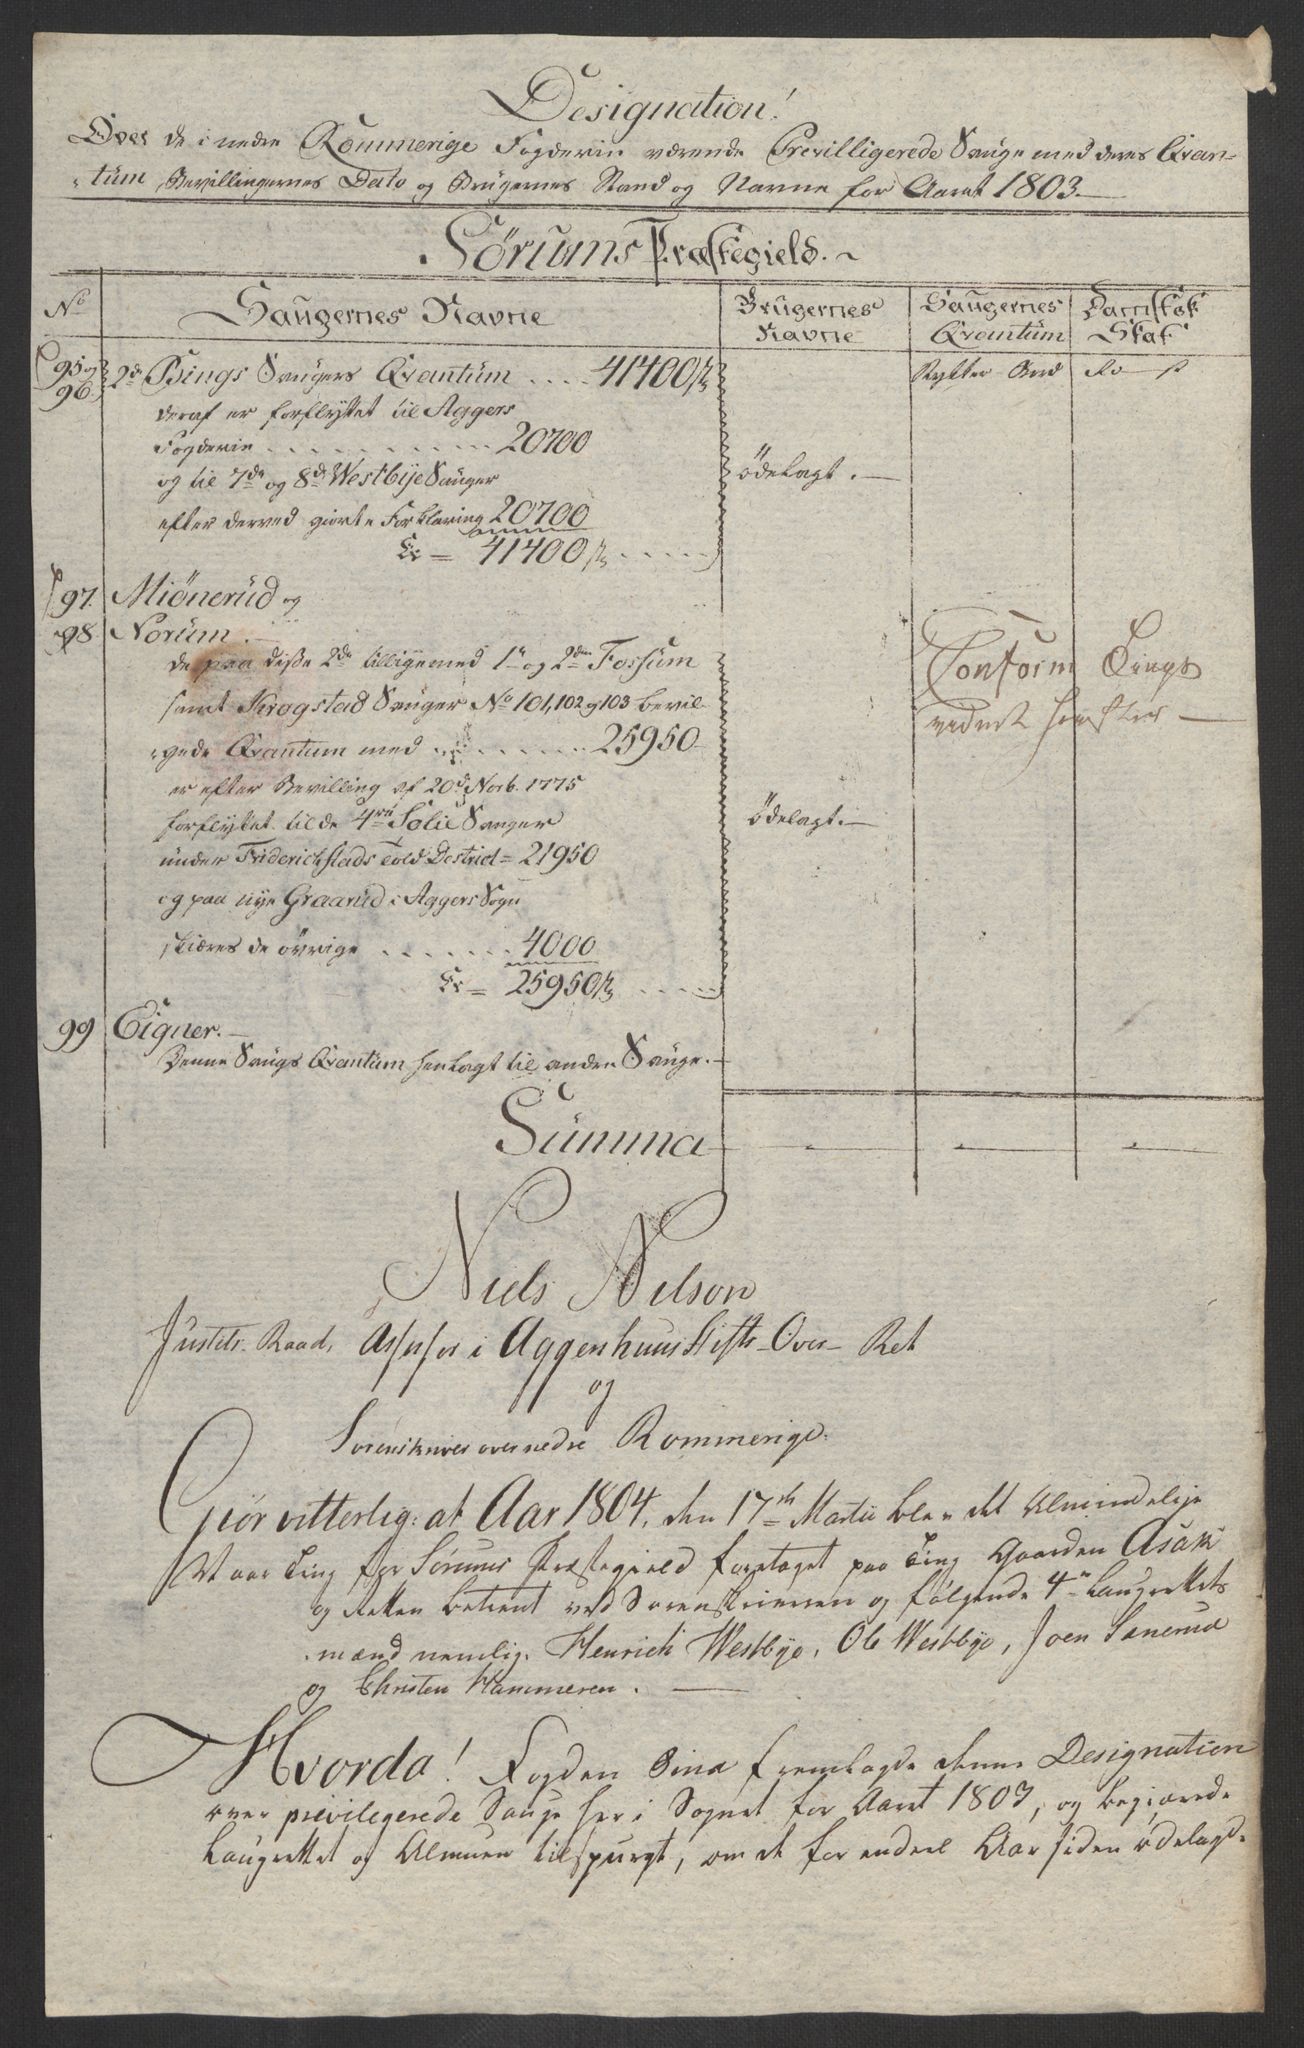 Designation!
Over de i nedre Rommerige Fogderie værende Previlligerede Sauge med deres Qvan-
tum, Bevillingernes Dato og Brugernes Stand og Navne for Aaret 1803.
Sörums Præstegield.
No
Saugernes Navne
Brugernes Navne
Saugernes Qvantum
Dansk Skat
95 og 96
2de Bings Saugers Qvantum .... 41400
Rd s
deraf er forflyttet til Aggers
Fogderie ........ 20700
og til 7de og 8de Westbye Sauger
ödelagt.
efter derved giorte Forklaring 20700
= 41400
97. Miönerüd og
98 Norum.
de paa disse 2de tilligemed 1te og 2den Fossum
Conform Tings
samt Krogstad Sauger No 101, 102 og 103 bevil-
vidnet heręfter
gede Qvantum med ...... 25950
er efter Bevilling af 20de Novb. 1775
forflyttet til de 4re Solie Sauger
ödelagt.
under Friderichstads Told Destrict = 21950
og paa nye Graarud i Aggers Sogn
skiæres de övrige ...... 4000
= 25950
99 Eigner.
Denne Saugs Qvantum henlagt til anden Sauge.
Summa
Niels Nilson
Justits Raad, Assessor i Aggershuus Stifts-Over-Ret
og
Sorenskriver over nedre Rommerige.
Giör vitterlig: at Aar 1804, den 17de Martii blev det Almindelige
Vaar Ting for Sörums Præstegield foretaget paa Ting Gaarden Asak
og Retten betient ved Sorenskriveren og følgende 4re Laugrettes
mænd nemlig. Henrich Westbye, Ole Westbye, Joen Sanerud
og Christen Hammeren.
Hvorda! Fogden fremlagde denne Designation
over previlegerede Sauge her i Sognet for Aaret 1803, og begiærede
Laugrettet og Almuen tilspurgt, om de for endeel Aar siden ödelagde